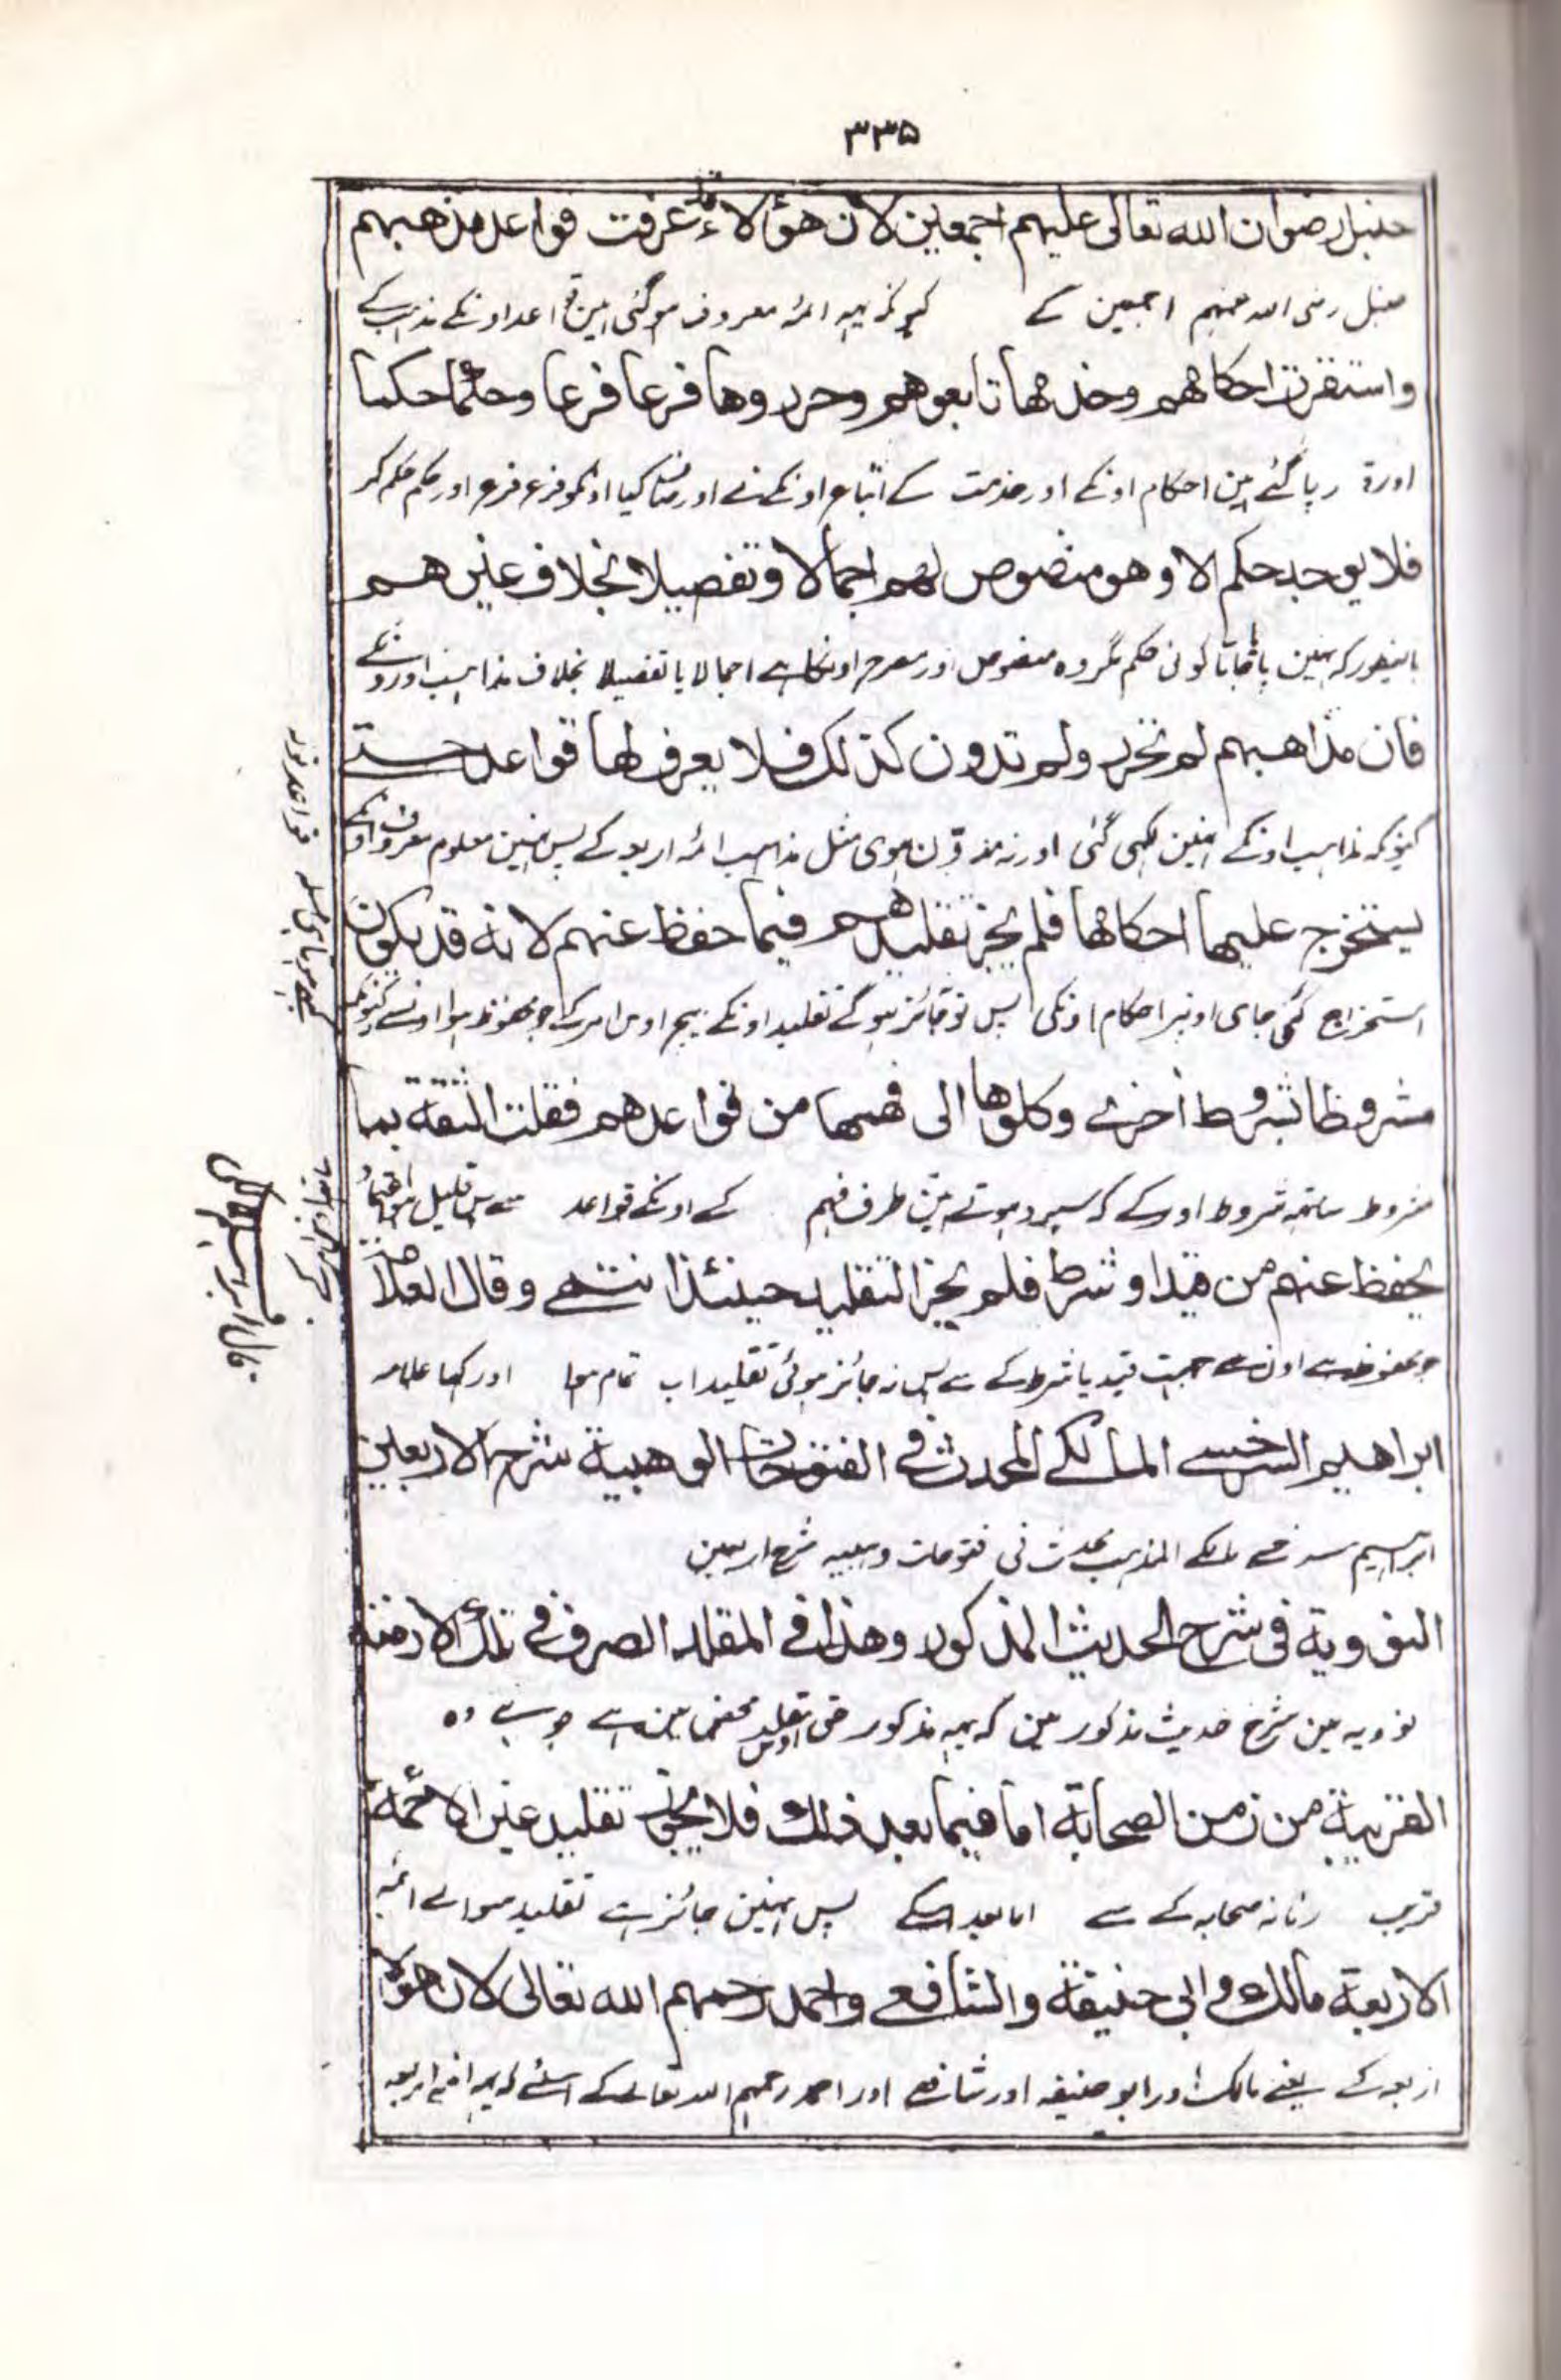 ۳۳۵
حنبل رضوان الله تعالى عليهم اجمعين لان هؤلاء قد عرفت قواعد مذهبهم
حنبل رضی اللہ عنہم اجمعین کے کیونکہ یہہ ائمہ معروف ہوگئی ہین قواعد اونکے مذہب کے
واستقرت احكامهم وخدمها تابعوهم وحرروها فرعا فرعا وحكما حكما
اور قرار پا گئے ہین احکام اونکے اور خدمت کے اتباع اونکے نے اور صاف کیا اونکو فرع فرع اور حکم حکم کر
فلا يوجد حكم الا وهو منصوص لهم اجمالا وتفصيلا بخلاف غيرهم
باینطور کہ نہین پایا جاتا کوئی حکم مگر وہ منصوص اور مصرح اونکا ہے اجمالا یا تفصیلا بخلاف مذاہب اورونکے
فان مذاهبهم لم تحرر ولم تدون كذلك فلا يعرف لها قواعد حتى
کیونکہ مذاہب اونکے نہین لکہی گئی اور نہ مدون ہوی مثل مذاہب ائمہ اربعہ کے پس نہین معلوم معروف اونکے
يستخرج عليها احكامها فلم يجز تقليدهم فيما حفظ عنهم لانه قد يكون
استخراج کئی جای اونپر احکام اونکی پس نہ جائز ہوگے تقلید اونکے بیچ اوس امر کے جو محفوظ ہوا اونسے کیونکہ
مشروطا بشروط أخرى وكلوها الى فهمها من قواعدهم فقلت الثقة بما
مشروط ساتہہ شروط اور کے کہ سپرد ہوتے ہین طرف فہم کے اونکے قواعد سے پس قلیل ہوا
يحفظ عنهم من قيد او شرط فلم يجز التقليد حينئذ انتهى وقال العلامة
جو محفوظ ہے اونسے قید یا شرط کے سے پس نہ جائز ہوئی تقلید اب تمام ہوا اور کہا علامہ
ابراهيم السرخسي المالكي المحدث في الفتوحات الوهبية شرح الاربعين
ابراہیم سرخسے مالکے المذہب محدث نی فتوحات وہبیہ شرح اربعین
النووية في شرح الحديث المذكور وهذا في المقلد الصرف في تلك الازمنة
نوویہ مین شرح حدیث مذکور مین کہ یہہ مذکور حق تقلید محض مین ہے جو ہے وہ
القريبة من زمن الصحابة اما فيما بعد ذلك فلا يجوز تقليد غير الائمة
قریب زمانہ صحابہ کے سے اما بعد اسکے پس نہین جائز ہے تقلید سوالے ائمہ
الاربعة مالك وابي حنيفة والشافعي واحمد رحمهم الله تعالى لان هؤلاء
اربعہ کے یعنے مالک اور ابو حنیفہ اور شافعے اور احمد رحمہم اللہ تعالے کے اسلئے کہ یہہ ائمہ اربعہ